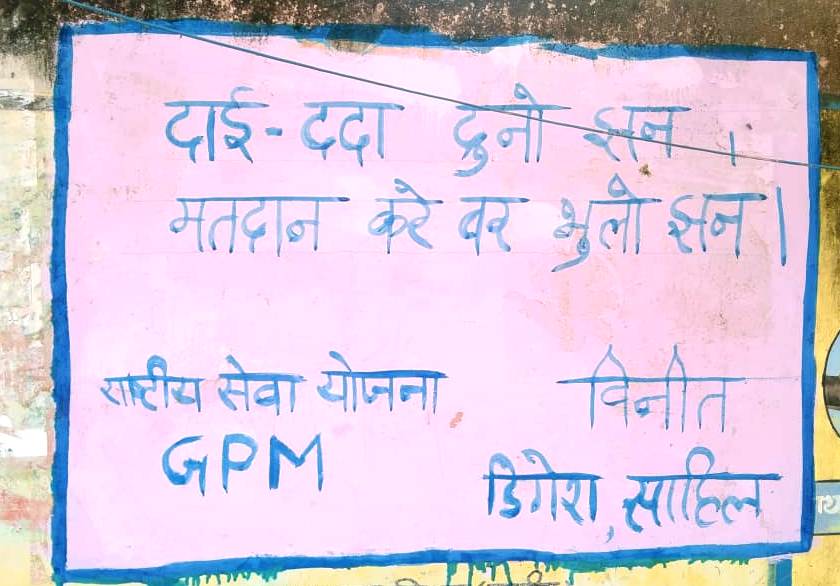 दाई-ददा दुनो झन ।
मतदान करे बर भुलो झन ।
राष्ट्रीय सेवा योजना
GPM
विनीत
डिगेश, साहिल